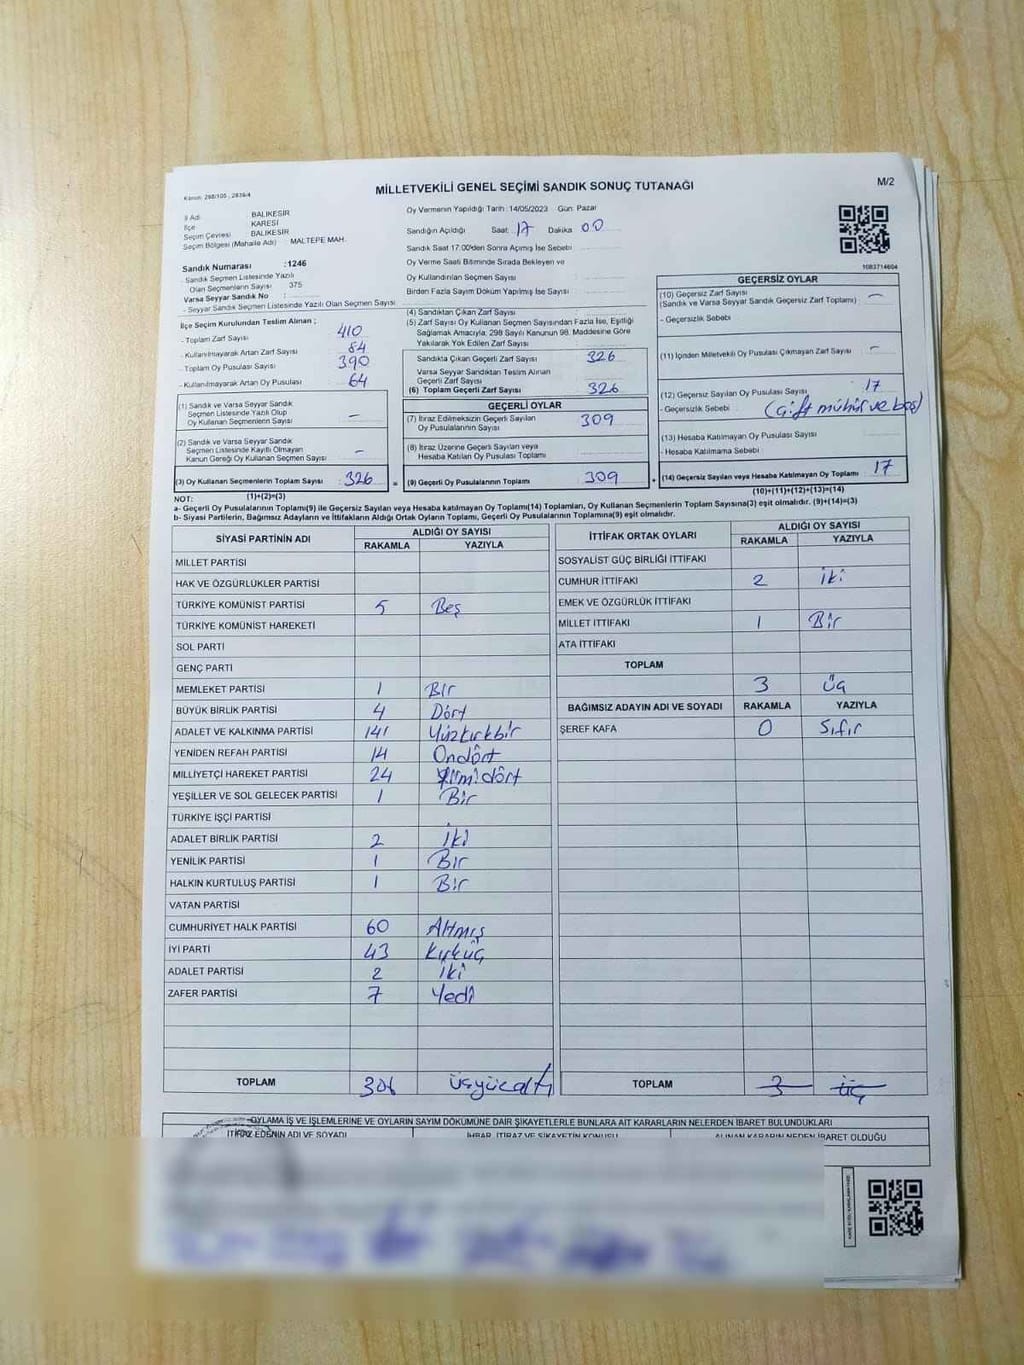 Kanun: 298/105 , 2839/4
MİLLETVEKİLİ GENEL SEÇİMİ SANDIK SONUÇ TUTANAĞI
M/2
İl Adı BALIKESİR
İlçe KARESİ
Seçim Çevresi BALIKESİR
Seçim Bölgesi (Mahalle Adı) MALTEPE MAH.
Oy Vermenin Yapıldığı Tarih : 14/05/2023 Gün: Pazar
Sandığın Açıldığı Saat : 17 Dakika 00
Sandık Saat 17:00'den Sonra Açılmış İse Sebebi
Oy Verme Saati Bitiminde Sırada Bekleyen ve
Oy Kullandırılan Seçmen Sayısı
Birden Fazla Sayım Döküm Yapılmış İse Sayısı
1083714604
Sandık Numarası : 1246
- Sandık Seçmen Listesinde Yazılı
Olan Seçmenlerin Sayısı 375
Varsa Seyyar Sandık No
- Seyyar Sandık Seçmen Listesinde Yazılı Olan Seçmen Sayısı
İlçe Seçim Kurulundan Teslim Alınan ;
- Toplam Zarf Sayısı 410
- Kullanılmayarak Artan Zarf Sayısı 84
- Toplam Oy Pusulası 390
- Kullanılmayarak Artan Oy Pusulası 64
(1) Sandık ve Varsa Seyyar Sandık
Seçmen Listesinde Yazılı Olup
Oy Kullanan Seçmenlerin Sayısı –
(2) Sandık ve Varsa Seyyar Sandık
Seçmen Listesinde Kayıtlı Olmayan
Kanun Gereği Oy Kullanan Seçmen Sayısı –
(3) Oy Kullanan Seçmenlerin Toplam Sayısı : 326 =
(1)+(2)=(3)
(4) Sandıktan Çıkan Zarf Sayısı
(5) Zarf Sayısı Oy Kullanan Seçmen Sayısından Fazla İse, Eşitliği
Sağlamak Amacıyla; 298 Sayılı Kanunun 98. Maddesine Göre
Yakılarak Yok Edilen Zarf Sayısı
Sandıkta Çıkan Geçerli Zarf Sayısı 326
Varsa Seyyar Sandıktan Teslim Alınan
Geçerli Zarf Sayısı
(6) Toplam Geçerli Zarf Sayısı 326
GEÇERLİ OYLAR
(7) İtiraz Edilmeksizin Geçerli Sayılan
Oy Pusulalarının Sayısı 309
(8) İtiraz Üzerine Geçerli Sayılan veya
Hesaba Katılan Oy Pusulası Toplamı
(9) Geçerli Oy Pusulalarının Toplamı 309 +
GEÇERSİZ OYLAR
(10) Geçersiz Zarf Sayısı
(Sandık ve Varsa Seyyar Sandık Geçersiz Zarf Toplamı) : –
- Geçersizlik Sebebi
(11) İçinden Milletvekili Oy Pusulası Çıkmayan Zarf Sayısı –
(12) Geçersiz Sayılan Oy Pusulası Sayısı 17
- Geçersizlik Sebebi (Çift mühür ve boş)
(13) Hesaba Katılmayan Oy Pusulası Sayısı
- Hesaba Katılmama Sebebi
(14) Geçersiz Sayılan veya Hesaba Katılmayan Oy Toplamı 17
(10)+(11)+(12)+(13)=(14)
NOT:
a- Geçerli Oy Pusulalarının Toplamı(9) ile Geçersiz Sayılan veya Hesaba katılmayan Oy Toplamı(14) Toplamları, Oy Kullanan Seçmenlerin Toplam Sayısına(3) eşit olmalıdır. (9)+(14)=(3)
b- Siyasi Partilerin, Bağımsız Adayların ve İttifakların Aldığı Ortak Oyların Toplamı, Geçerli Oy Pusulalarının Toplamına(9) eşit olmalıdır.
SİYASİ PARTİNİN ADI ALDIĞI OY SAYISI
RAKAMLA YAZIYLA
MİLLET PARTİSİ
HAK VE ÖZGÜRLÜKLER PARTİSİ
TÜRKİYE KOMÜNİST PARTİSİ 5 Beş
TÜRKİYE KOMÜNİST HAREKETİ
SOL PARTİ
GENÇ PARTİ
MEMLEKET PARTİSİ 1 Bir
BÜYÜK BİRLİK PARTİSİ 4 Dört
ADALET VE KALKINMA PARTİSİ 141 Yüzkırkbir
YENİDEN REFAH PARTİSİ 14 Ondört
MİLLİYETÇİ HAREKET PARTİSİ 24 Yirmidört
YEŞİLLER VE SOL GELECEK PARTİSİ 1 Bir
TÜRKİYE İŞÇİ PARTİSİ
ADALET BİRLİK PARTİSİ 2 İki
YENİLİK PARTİSİ 1 Bir
HALKIN KURTULUŞ PARTİSİ 1 Bir
VATAN PARTİSİ
CUMHURİYET HALK PARTİSİ 60 Altmış
İYİ PARTİ 43 Kırküç
ADALET PARTİSİ 2 İki
ZAFER PARTİSİ 7 Yedi
TOPLAM 306 üçyüzaltı
İTTİFAK ORTAK OYLARI ALDIĞI OY SAYISI
RAKAMLA YAZIYLA
SOSYALİST GÜÇ BİRLİĞİ İTTİFAKI
CUMHUR İTTİFAKI 2 İki
EMEK VE ÖZGÜRLÜK İTTİFAKI
MİLLET İTTİFAKI 1 Bir
ATA İTTİFAKI
TOPLAM 3 Üç
BAĞIMSIZ ADAYIN ADI VE SOYADI RAKAMLA YAZIYLA
ŞEREF KAFA 0 Sıfır
TOPLAM 3 üç
OYLAMA İŞ VE İŞLEMLERİNE VE OYLARIN SAYIM DÖKÜMÜNE DAİR ŞİKAYETLERLE BUNLARA AİT KARARLARIN NELERDEN İBARET BULUNDUKLARI
İTİRAZ EDENİN ADI VE SOYADI İHBAR, İTİRAZ VE ŞİKAYETİN KONUSU ALINAN KARARIN NEDEN İBARET OLDUĞU